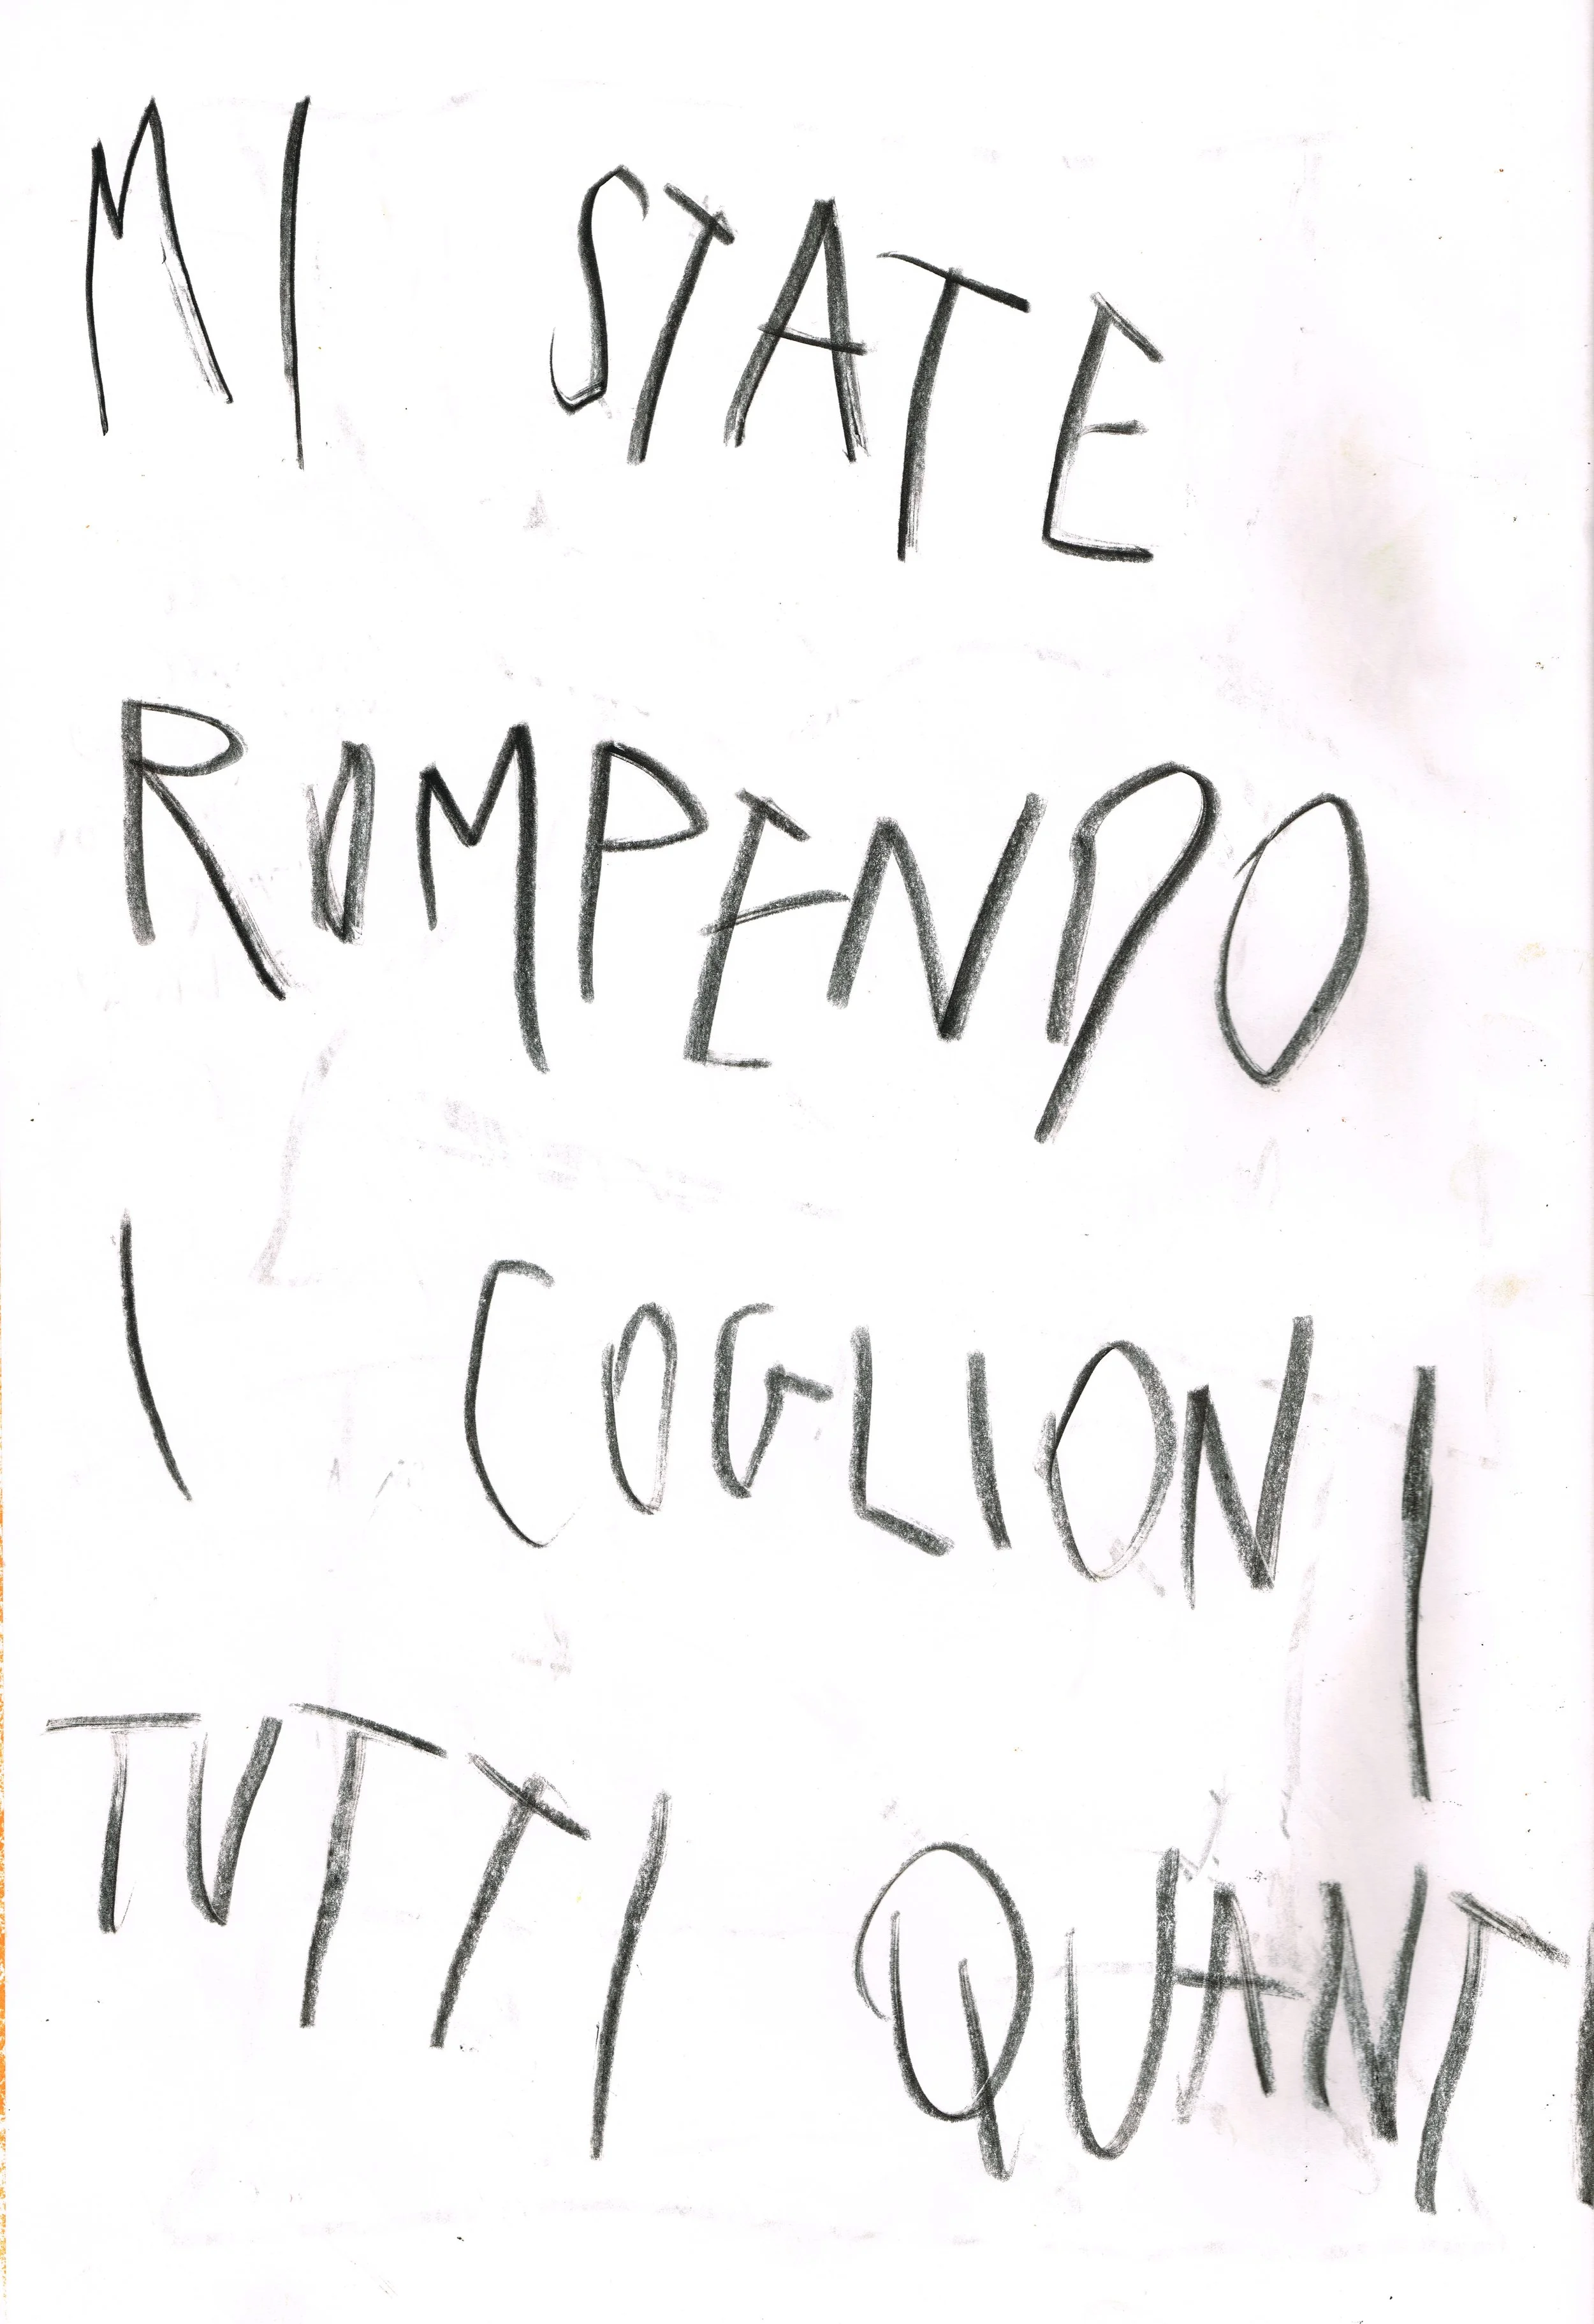 MI STATE
ROMPENDO
I COGLIONI
TUTTI QUANTI